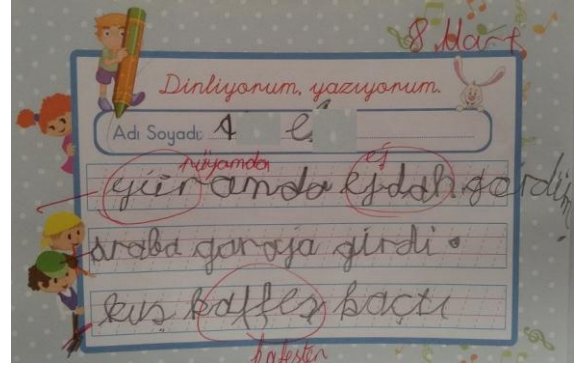 8 Mart
Dinliyorum, yazıyorum.
Adı Soyadı:
rüyamda ej
yüramda ejdah gördüm.
araba garaja girdi.
kuş kaffes kaçtı
kafesten